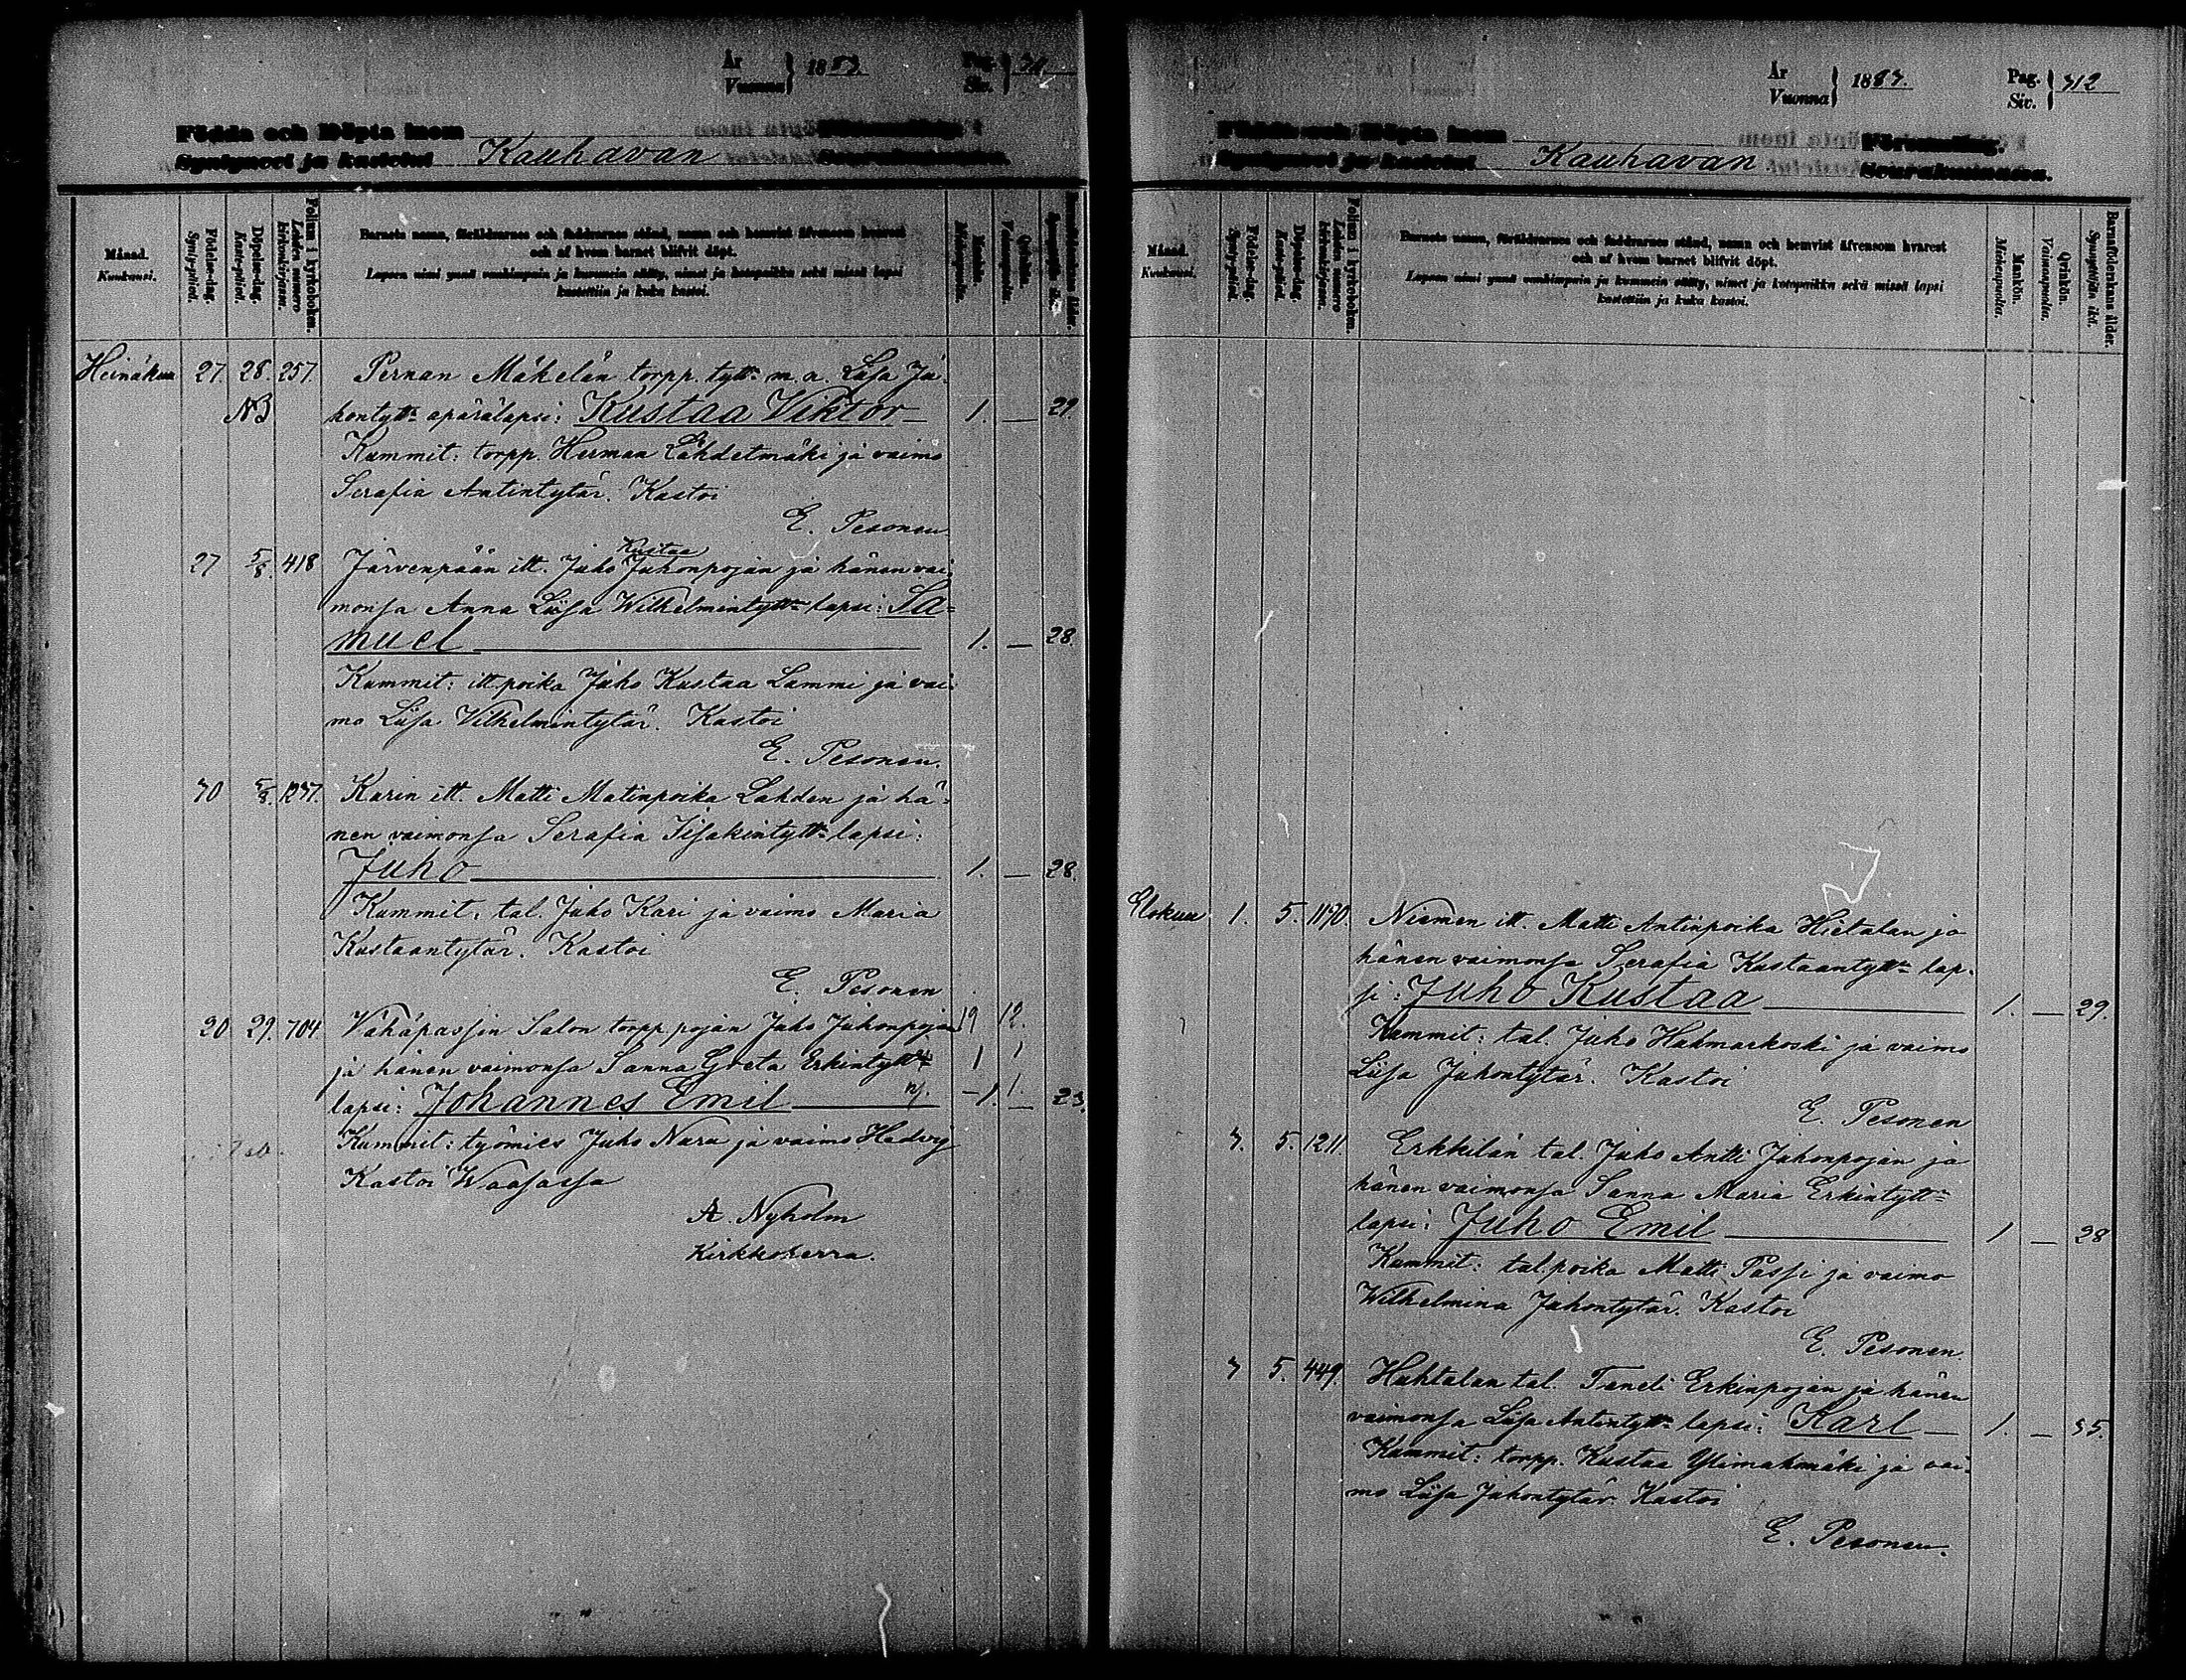 År
Vuonna } 1883.
Pag.
Siv. } 311
Födda och Döpta inom
Syntyneet ja kastetut Kauhavan Seurakunnassa.
Månad.
Kuukausi.
Födelse-dag.
Synty-päivä.
Döpelse-dag.
Kaste-päivä.
Folium i kyrkoboken.
Lehden numero kirkonkirjassa.
Barnets namn, föräldrarnes och faddrarnes stånd, namn och hemvist äfvensom hvarest
och af hvem barnet blifvit döpt.
Lapsen nimi ynnä vanhimpain ja kummein sääty, nimet ja kotopaikka sekä missä lapsi
kastettiin ja kuka kastoi.
Mankön.
Miehenpuolia.
Qvinkön.
Vaimonpuolia.
Barnaföderskans ålder.
Synnyttäjän ikä.
Heinäkuu 27. 28. 257. Pernan Mäkelän torpp. tytt. m.a. Liisa Ja-
NB hontytt. äpärälapsi: Kustaa Viktor 1. — 29.
Kummit: torpp. Herman Lähdetmäki ja vaimo
Serafia Antintytär. Kastoi
E. Pesonen
27 5/8. 418 Järvenpään itt. Juho Kustaa Juhonpojan ja hänen vai-
monsa Anna Liisa Wilhelmintytt. lapsi: Sa=
muel 1. — 28.
Kummit: itt. poika Juho Kustaa Lammi ja vai-
mo Liisa Vilhelmintytär. Kastoi
E. Pesonen.
30 5/8. 1237. Karin itt. Matti Matinpoika Lahden ja hä-
nen vaimonsa Serafia Iisakintytt. lapsi:
Juho 1. — 28.
Kummit: tal. Juho Kari ja vaimo Maria
Kustaantytär. Kastoi
E. Pesonen
20 29. 704 Vähäpassin Salon torpp. pojan Juho Juhonpojan 19 12.
ja hänen vaimonsa Sanna Greta Erkintytt. 1 1
lapsi: Johannes Emil 1. — 23.
Kummit: työmies Juho Nara ja vaimo Hedvig
Kastoi Waasassa
A. Nyholm
Kirkkoherra.
År
Vuonna } 1883.
Pag.
Siv. } 312
Födda och Döpta inom Församling.
Syntyneet ja kastetut Kauhavan Seurakunnassa.
Månad.
Kuukausi.
Födelse-dag.
Synty-päivä.
Döpelse-dag.
Kaste-päivä.
Folium i kyrkoboken.
Lehden numero kirkonkirjassa.
Barnets namn, föräldrarnes och faddrarnes stånd, namn och hemvist äfvensom hvarest
och af hvem barnet blifvit döpt.
Lapsen nimi ynnä vanhimpain ja kummein sääty, nimet ja kotopaikka sekä missä lapsi
kastettiin ja kuka kastoi.
Mankön.
Miehenpuolia.
Qvinkön.
Vaimonpuolia.
Barnaföderskans ålder.
Synnyttäjän ikä.
Elokuu 1. 5. 1170. Niemen itt. Matti Antinpoika Hietalan ja
hänen vaimonsa Serafia Kustaantytt. lap-
si: Juho Kustaa 1. — 29.
Kummit: tal. Juho Hahmarkoski ja vaimo
Liisa Juhontytär. Kastoi
E. Pesonen
3. 5. 1211. Erkkilän tal. Juho Antti Juhonpojan ja
hänen vaimonsa Sanna Maria Erkintytt.
lapsi: Juho Emil 1 — 28
Kummit: tal. poika Matti Passi ja vaimo
Wilhelmina Juhontytär. Kastoi
E. Pesonen.
3 5. 449. Huhtalan tal. Taneli Erkinpojan ja hänen
vaimonsa Liisa Antintytt. lapsi: Karl 1. — 35.
Kummit: torpp. Kustaa Ylimahmäki ja vai-
mo Liisa Juhontytär. Kastoi
E. Pesonen.